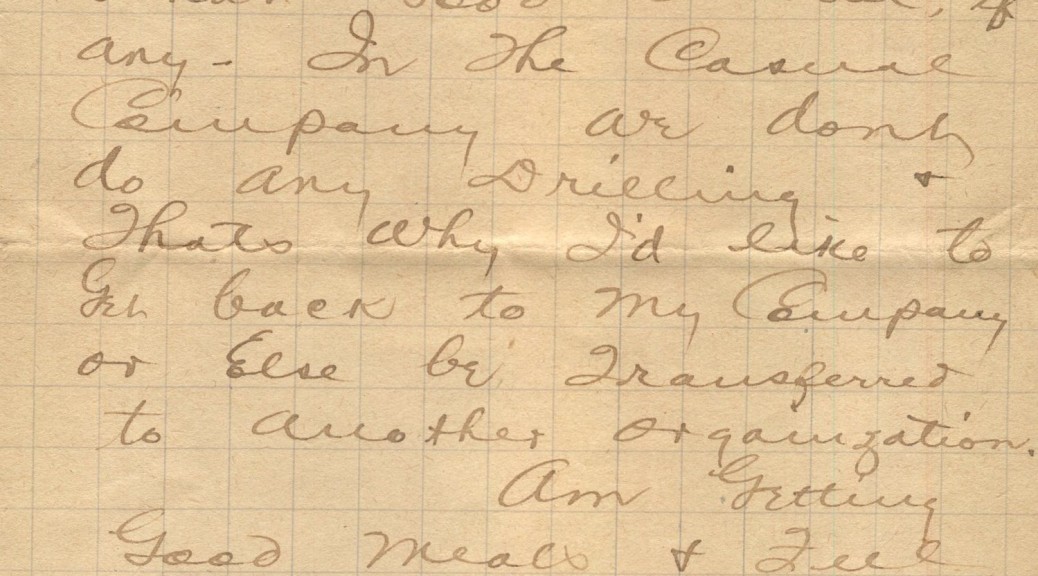 if
any - In The Casual
Company we dont
do any Drilling +
Thats Why I'd like to
Get back to My Company
or Else be Transferred
to another organization.
Am Getting
Good Meals + Feel